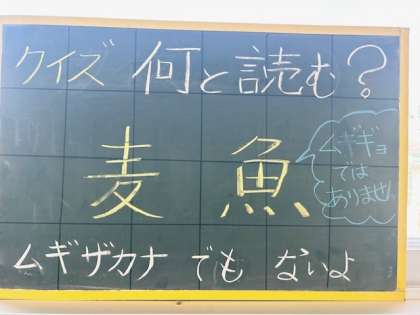 クイズ 何と読む?
麦 魚
ムギギョ
では
ありません
ムギザカナ でも ないよ